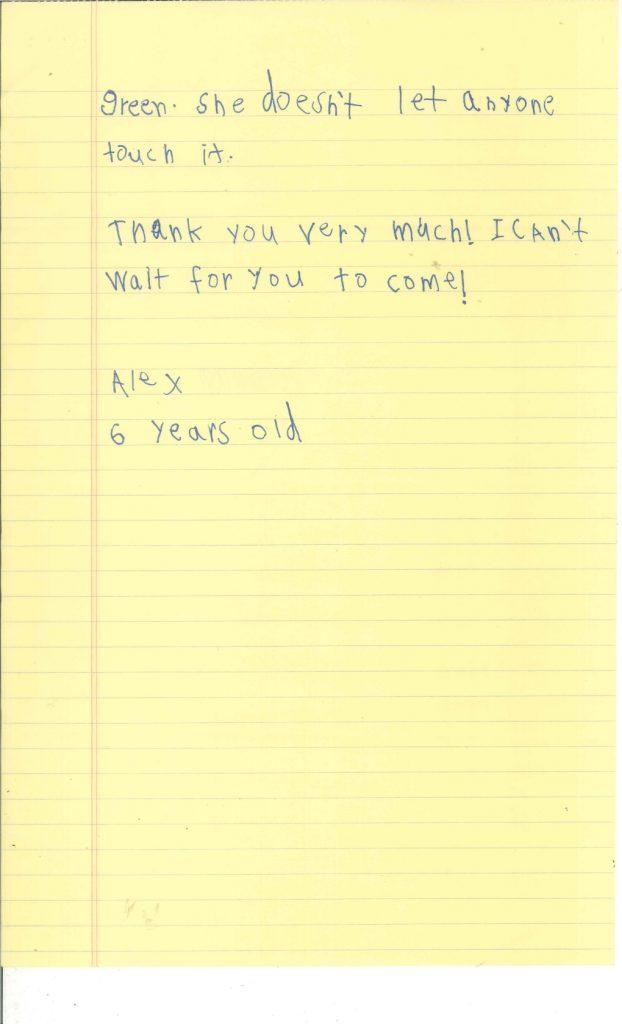 green. she doesn't let anyone
touch it.
Thank you very much! I CAn't
Wait for you to come!
Alex
6 years old